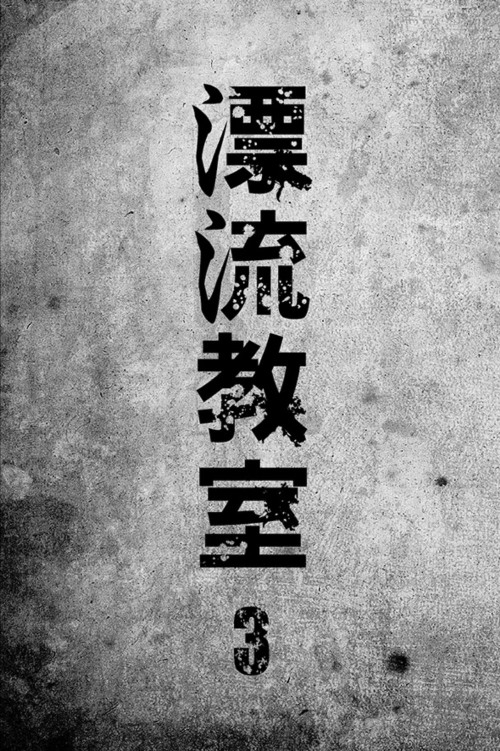 漂流教室
3